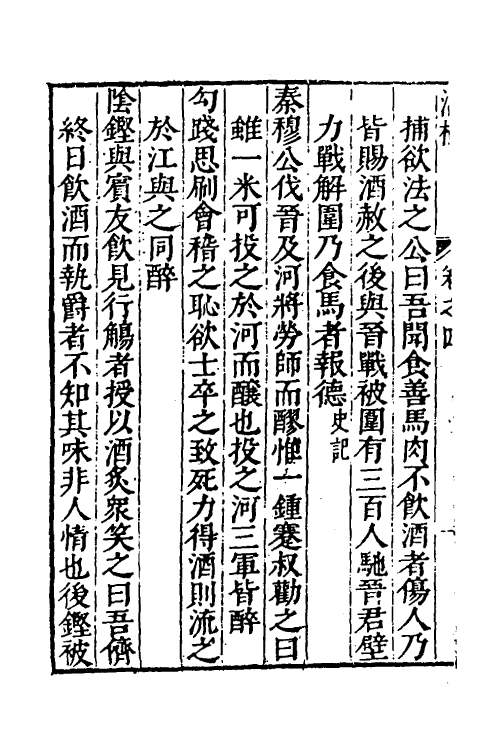 捕欲法之公曰吾聞食善馬肉不飲酒者傷人乃
皆賜酒赦之後與晉戰被圍有三百人馳晉君壁
力戰解圍乃食馬者報德史記
秦穆公伐晉及河將勞師而醪惟一鍾蹇叔勸之曰
雖一米可投之於河而釀也投之河三軍皆醉
勾踐思刷會稽之恥欲士卒之致死力得酒則流之
於江與之同醉
陰鏗與賓友飲見行觴者授以酒炙衆笑之曰吾儕
終日飲酒而執爵者不知其味非人情也後鏗被